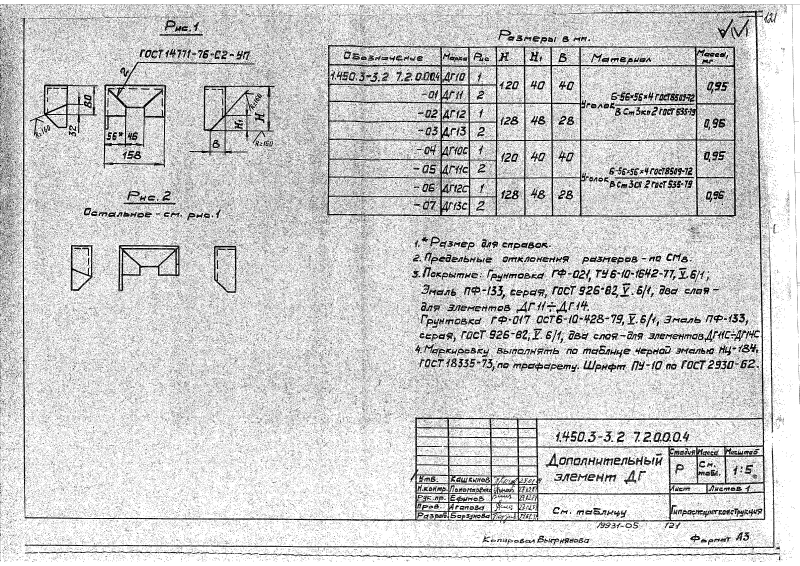 121
Рис.1
ГОСТ 14771-76-С2-УП
2
80
32
R≥160
56* 46
158
В
Н1
Н
R≥160
Рис. 2
Остальное - см. рис.1
Размеры в мм.
Обозначение Марка Рис Н Н1 В Материал Масса, кг
1.450.3-3.2 7.2.0.0.0.4 ДГ10 1 120 40 40 0,95
-01 ДГ11 2
Уголок Б-56×56×4 ГОСТ 8509-72
В Ст3кп2 ГОСТ 535-79
-02 ДГ12 1 128 48 28 0,96
-03 ДГ13 2
-04 ДГ10С 1 120 40 40 0,95
-05 ДГ11С 2
Уголок Б-56×56×4 ГОСТ 8509-72
-06 ДГ12С 1 128 48 28 0,96
-07 ДГ13С 2
1.* Размер для справок.
2. Предельные отклонения размеров - по
3. Покрытие: Грунтовка ГФ-021, ТУ6-10-1642-77, V. 6/1;
Эмаль ПФ-133, серая, ГОСТ 926-82, V. 6/1, два слоя -
для элементов ДГ11÷ДГ14.
Грунтовка ГФ-017 ОСТ6-10-428-79, V. 6/1, Эмаль ПФ-133,
серая, ГОСТ 926-82, V. 6/1, два слоя - для элементов ДГ11С÷ДГ14С
4. Маркировку выполнять по таблице черной эмалью НЦ-184
ГОСТ 18335-73, по трафарету. Шрифт ПУ-10 по ГОСТ 2930-62.
1.450.3-3.2 7.2.0.0.0.4
Дополнительный
элемент ДГ
Стадия Масса Масштаб
Р См. табл. 1:5
Лист Листов 1
Утв. Кашкинов
Н.контр. Пономарева
Рук.пр. Ефимов
Пров. Агапова
Разраб. Борзунова
См. таблицу
Гипроспецлегконструкция
19931-05 121
Копировал
Формат А3